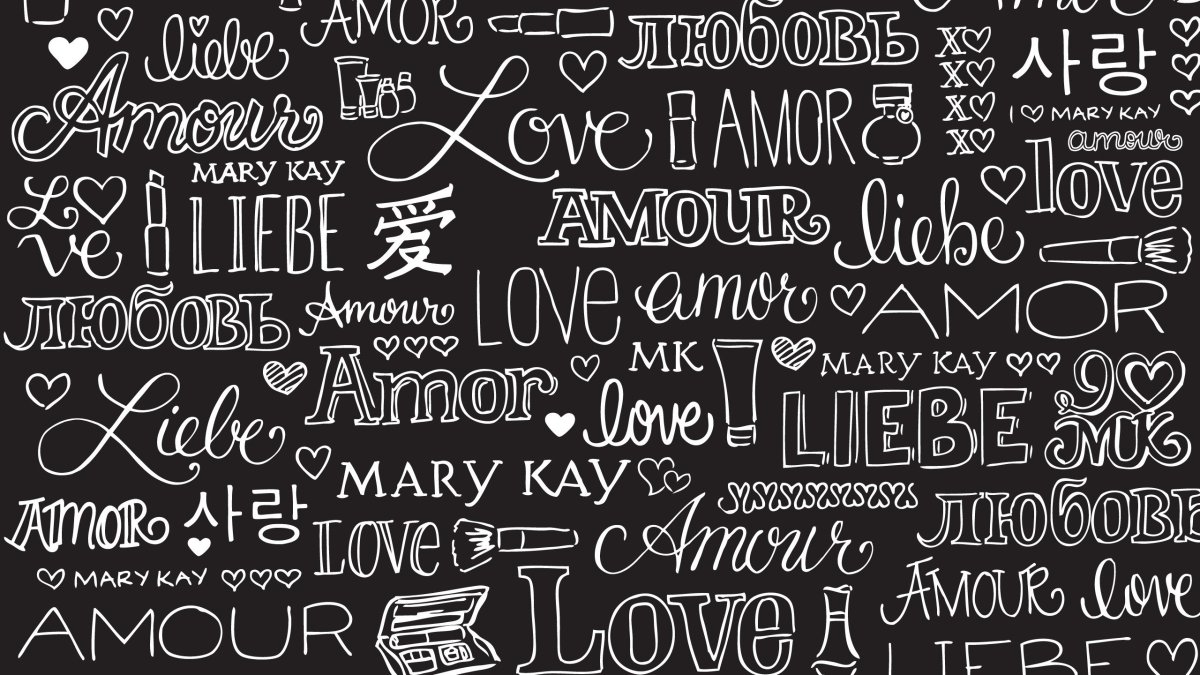 AMOR
любовь
liebe
Amour
Love
AMOR
XXXX
사랑
I ♡ MARY KAY
amour
love
MARY KAY
LOVE
LIEBE
爱
AMOUR
liebe
любовь
Amour
LOVE
amor
AMOR
Liebe
Amor
MK
love
MARY KAY
LIEBE
I ♡ MK
MARY KAY
AMOR
사랑
LOVE
Amour
любовь
MARY KAY
AMOUR
Love
AMOUR
love
LIEBE